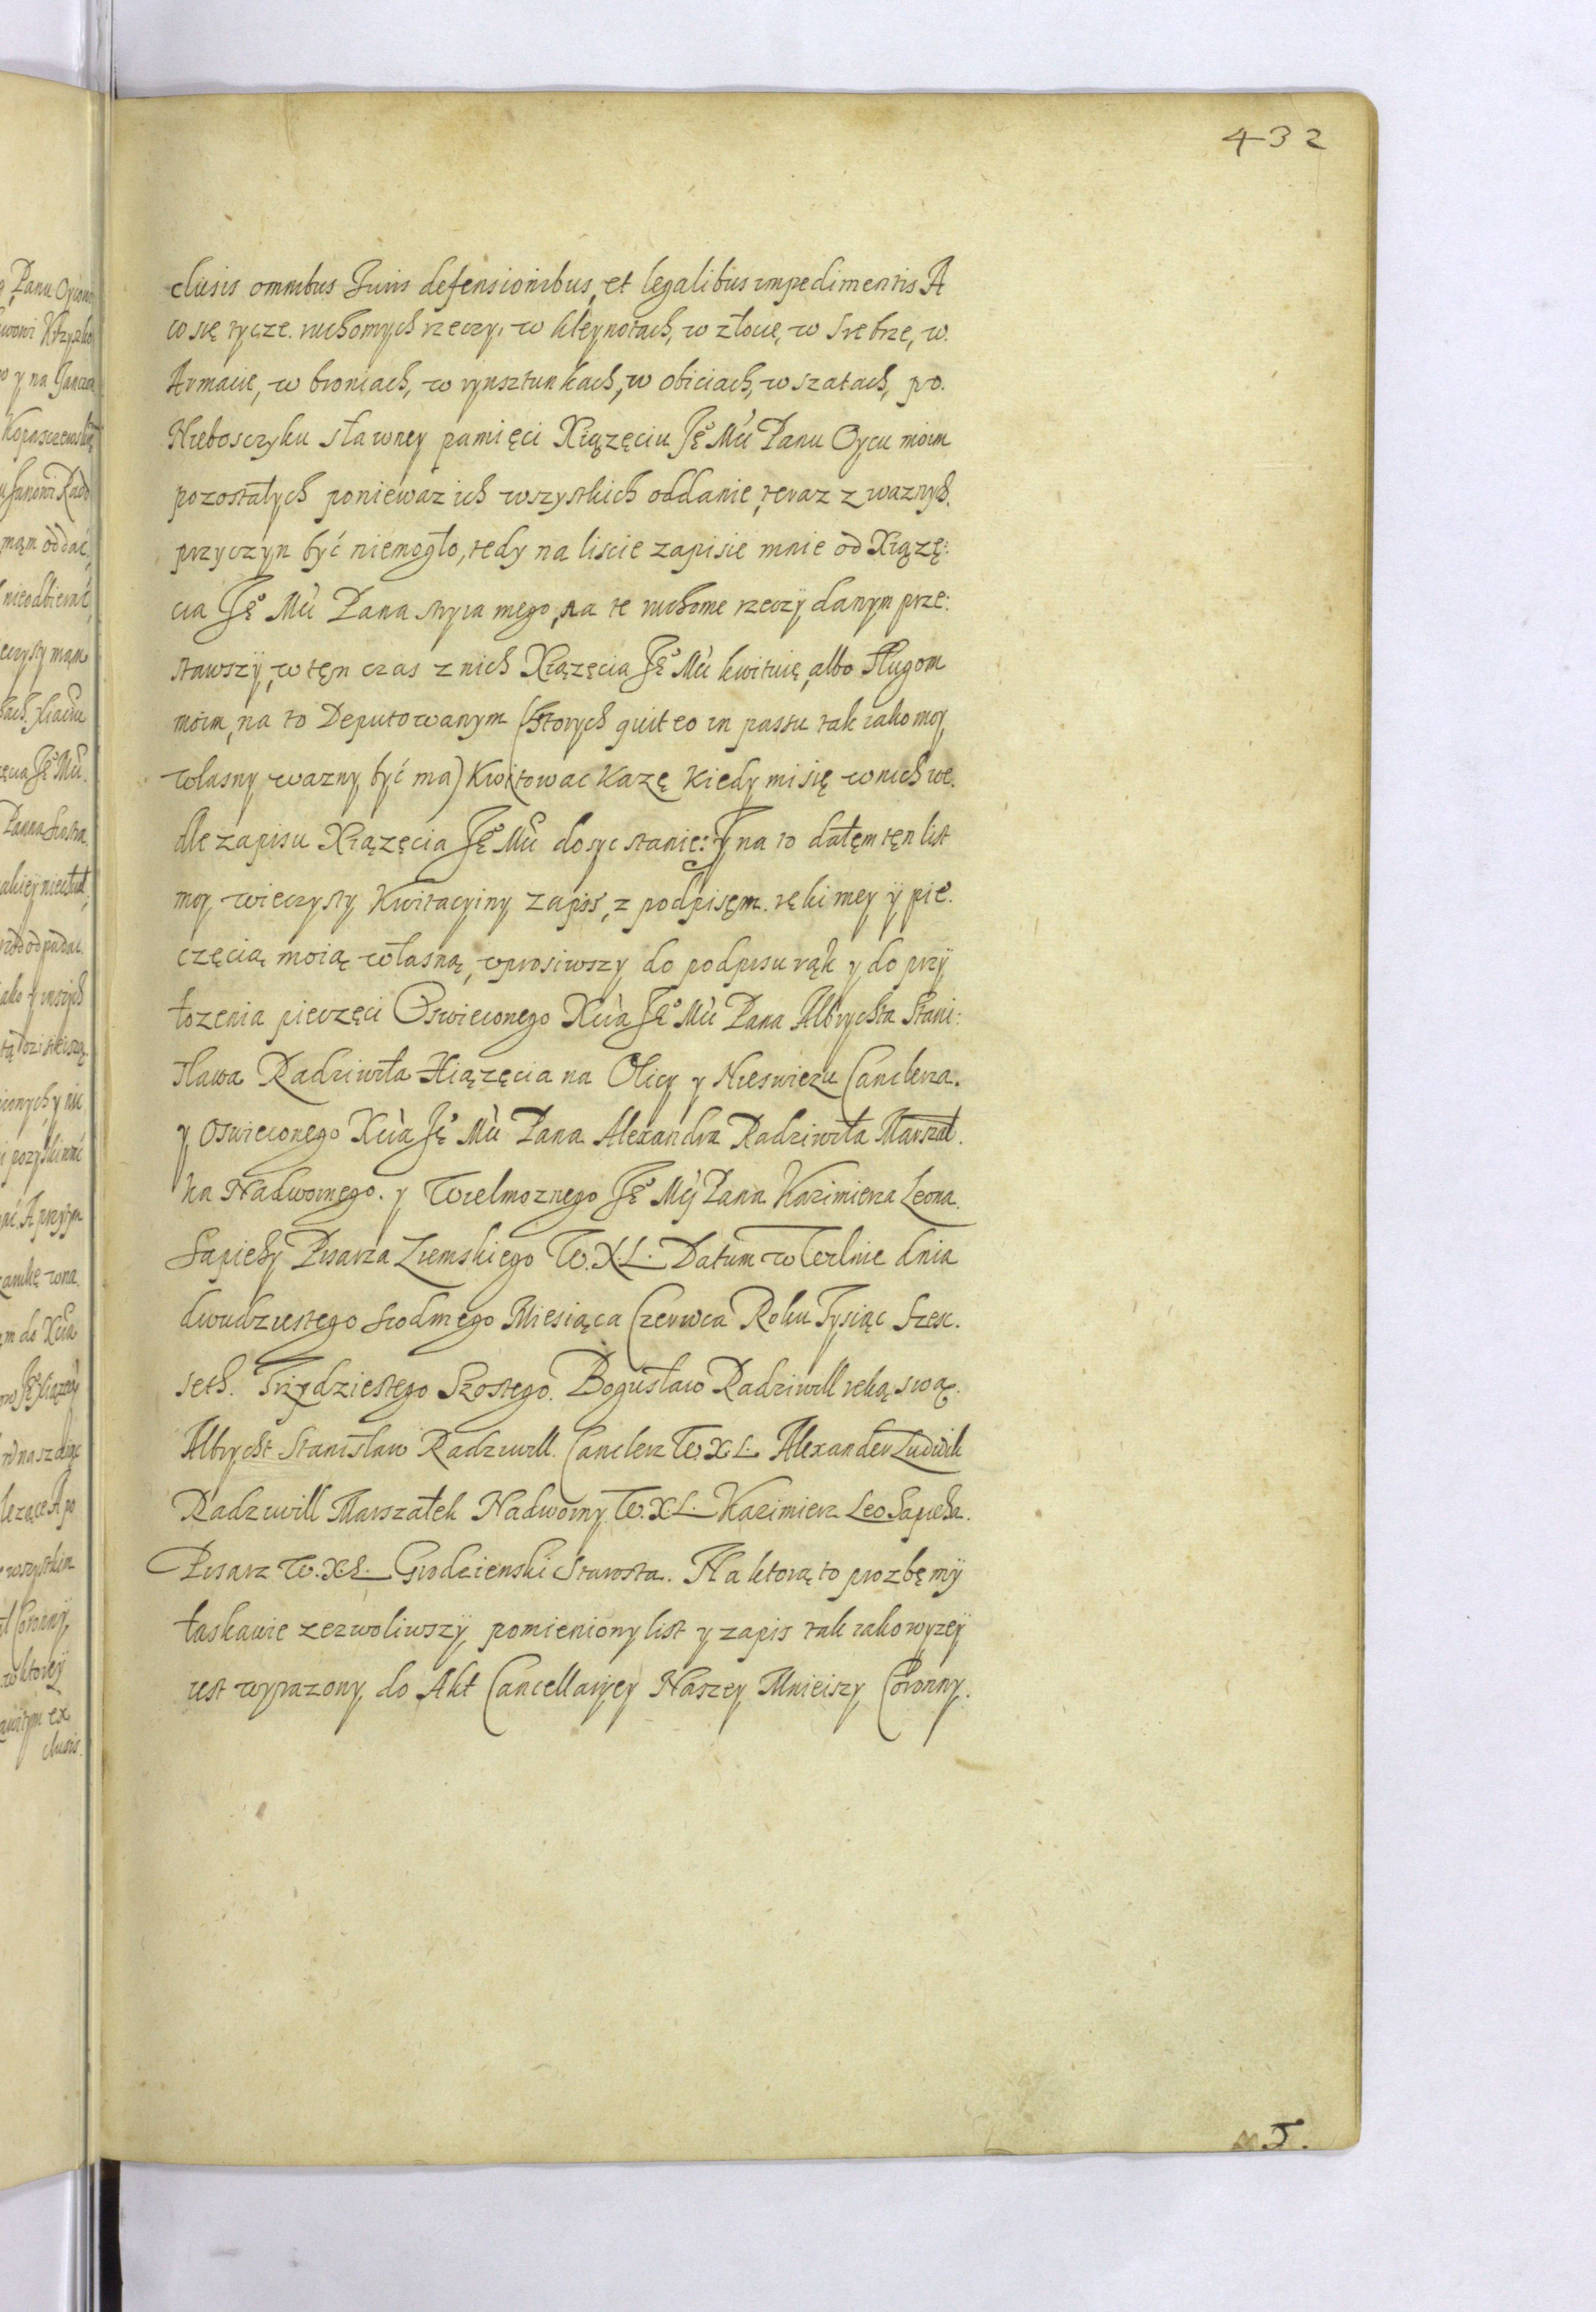 432
clusis omnibus Iuris defensionibus, et legalibus impedimentis A
co się tycze. ruchomych rzeczy, w kleynotach, w złocie, w srebrze, w.
Armacie, w broniach, w rynsztunkach, w obiciach, w szatach, po.
Nieboszczyku sławney pamięci Xiązęciu Ję° Mci Panu Oycu moim
pozostałych ponieważ ich wszystkich oddanie, teraz z waznych.
przyczyn być niemogło, tedy na liscie zapisie mnie od Xiązę:
cia Ję° Mci Pana stryia mego, na te ruchome rzeczÿ danym prze:
stawszÿ, w tęn czas z nich Xiązęcia Ję° Mci kwituię, albo Sługom
moim, na to Deputowanym (ktorych quit eo in passu tak iako moy,
własny wazny być ma) Kwitowac Każę kiedy mi się w nich we.
dle zapisu Xiązęcia Ję° Mci dosyc stanie: Y na to dałęm tęn list
moy wieczysty Kwitacyiny zapis, z podpisęm. ręki mey ÿ pie.
częcią moią własną, uprosiwszy do podpisu rąk y do przÿ
łozenia pieczęci Oswieconego Xcia Ję° Mci Pana Albrychta Stani:
sława Radziwiła Xiązęcia na Olice y Nieswiezu Canclerza.
y Oswieconego Xcia Ję° Mci Pana Alexandra Radziwiła Marszał.
ka Nadwornego. y Wielmoznego Ję° Mci Pana Kazimierza Leona.
Sapiehy Pisarza Ziemskiego W.X.L. Datum w Wilnie dnia
dwudziestego siodmego Miesiąca Czerwca Roku Tysiąc Szesc.
seth. Trzydziestego Szostego. Bogusław Radziwill ręką swą.
Albrycht Stanisław Radziwill. Canclerz W.X.L. Alexander Ludwik
Radziwill Marszałek Nadworny W.X.L. Kazimierz Leo Sapieha.
Pisarz W.X.L. Grodzienski Starosta. Na ktorą to prozbę mÿ
łaskawie zezwoliwszÿ, pomieniony list y zapis tak iako wyzeÿ
iest wyrazony, do Akt Cancellaryey Naszey Mnieiszy Coronny.
5.